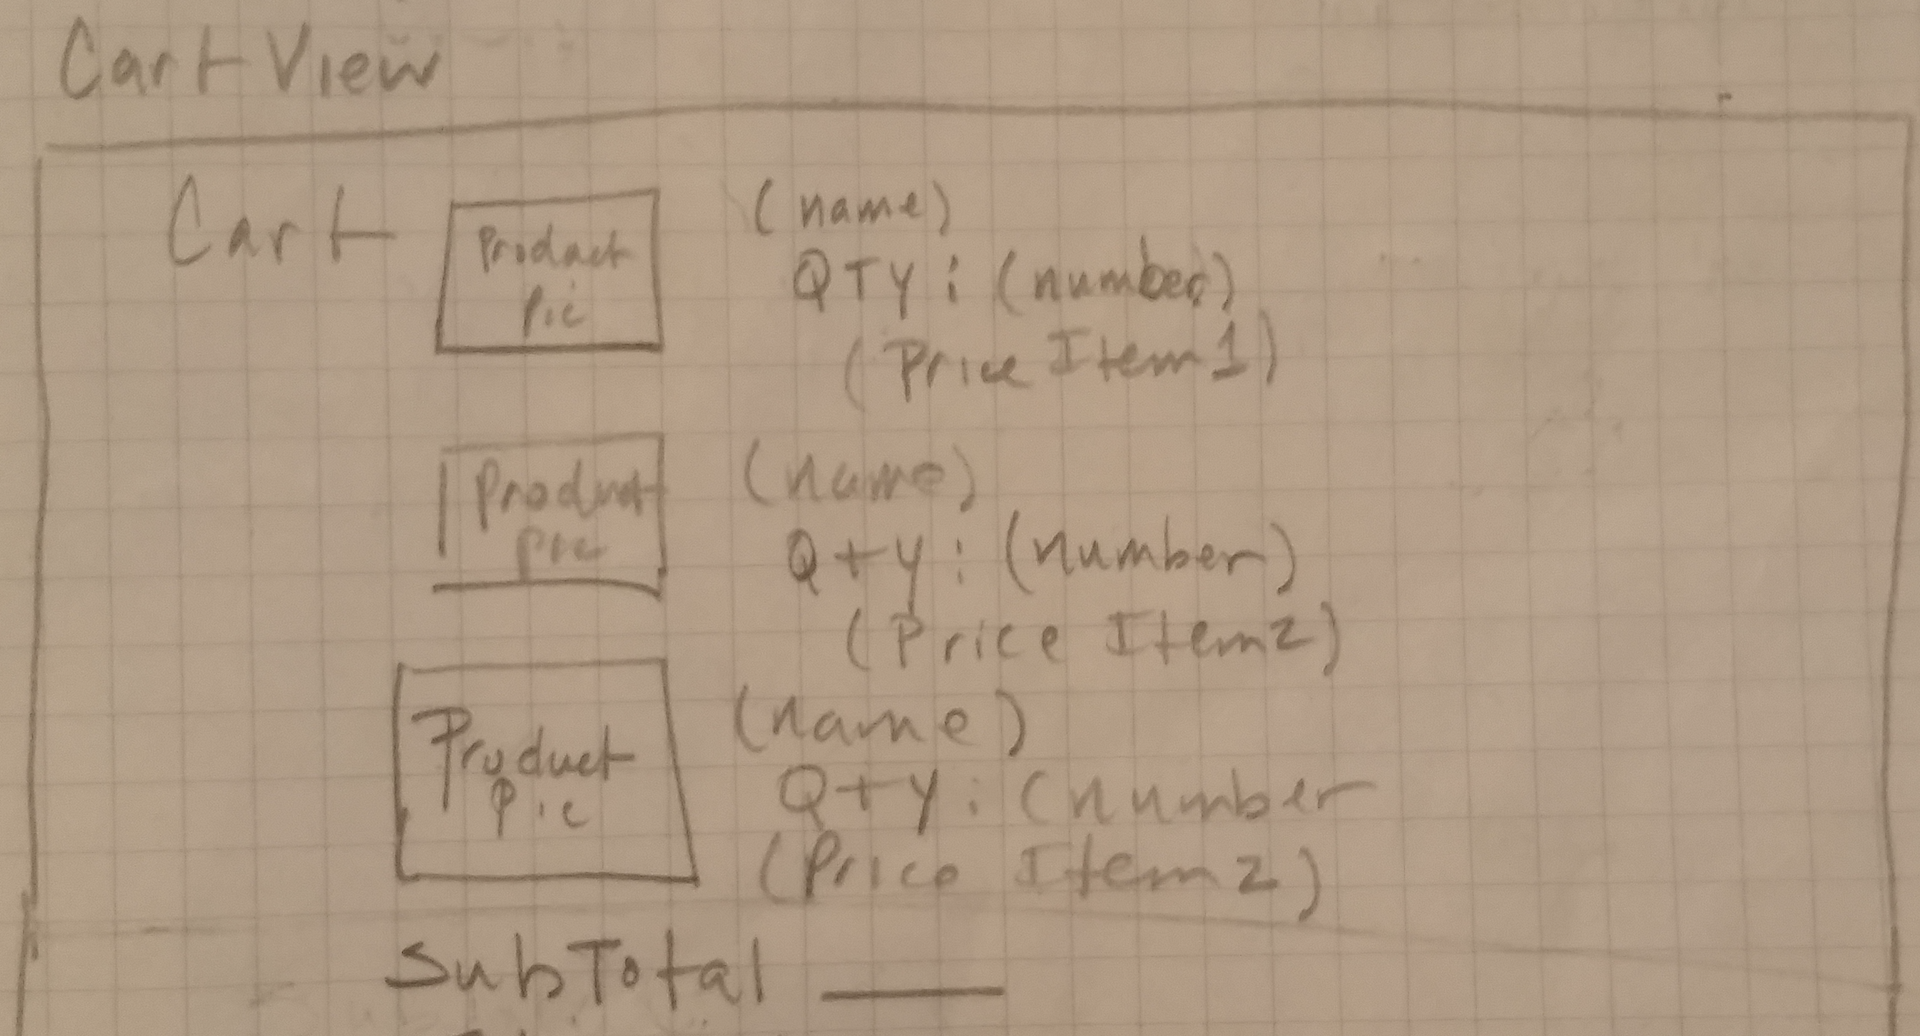 Cart View
Cart
Product
Pic
(name)
QTY: (number)
(Price Item 1)
Product
Pic
(name)
Qty: (number)
(Price Item 2)
Product
Pic
(name)
Qty: (number
(Price Item 2)
SubTotal